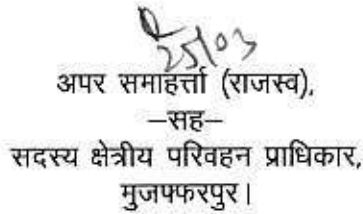 25/03
अपर समाहर्त्ता (राजस्व),
–सह–
सदस्य क्षेत्रीय परिवहन प्राधिकार,
मुजफ्फरपुर।